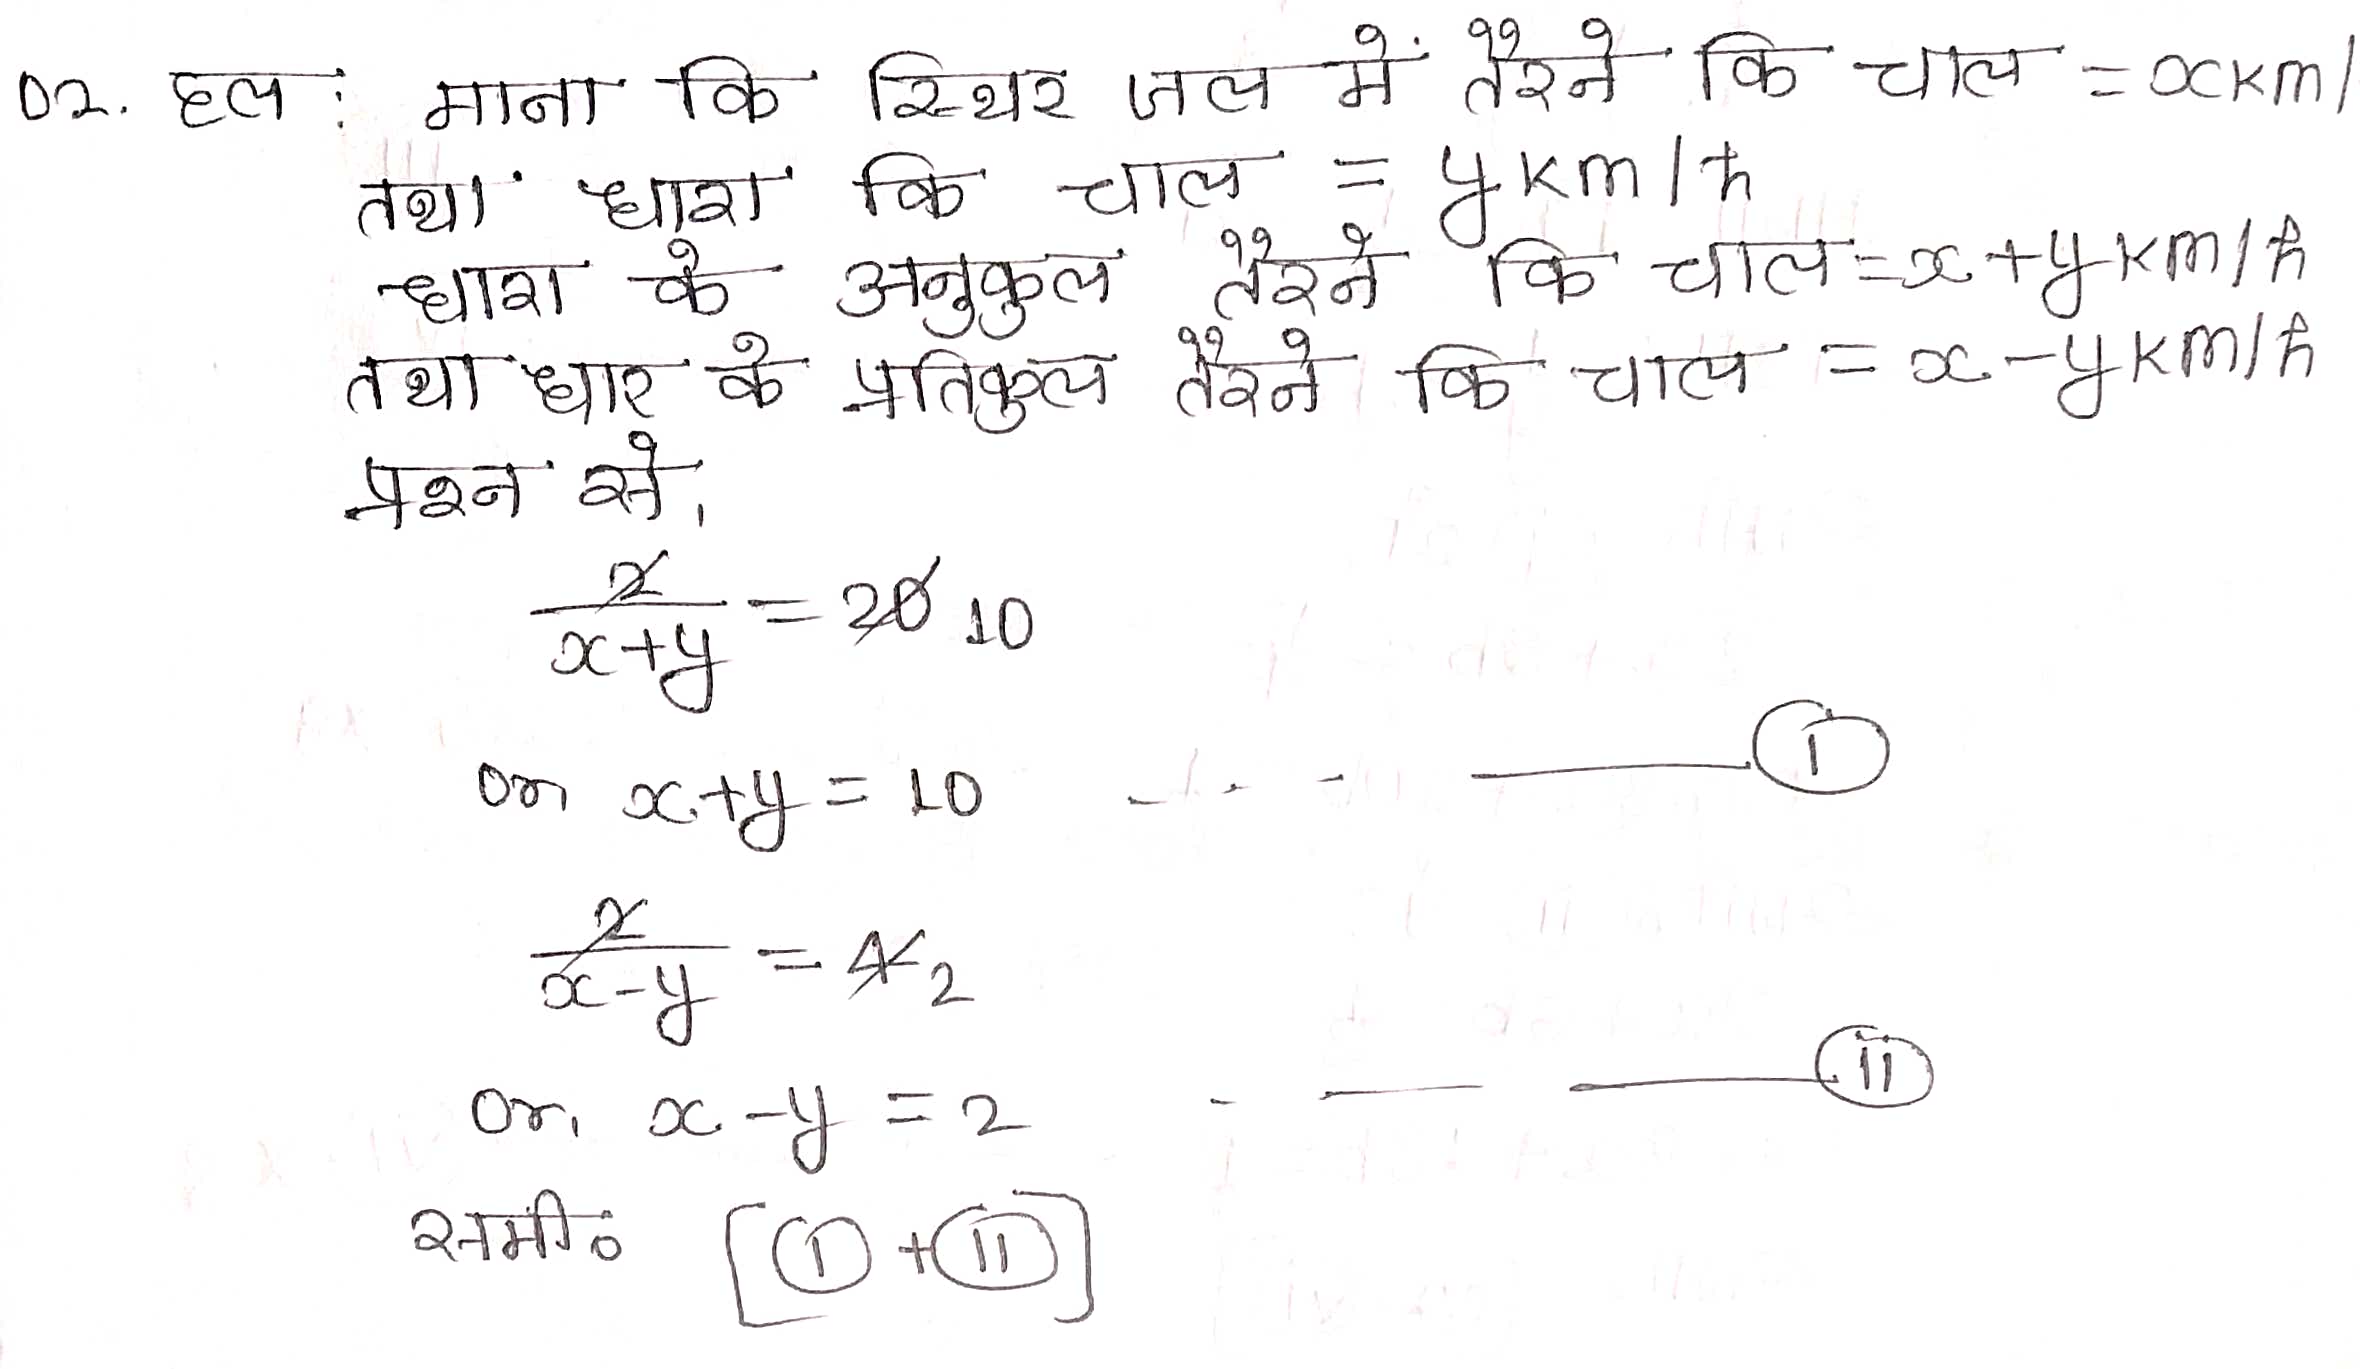 02. हल: माना कि स्थिर जल में तैरने कि चाल = x km/
तथा धारा कि चाल = y km/h
धारा के अनुकुल तैरने कि चाल = x + y km/h
तथा धार के प्रतिकुल तैरने कि चाल = x - y km/h
प्रश्न से,
2/(x+y) = 20 10
or x+y = 10 - - - ——— (I)
2/(x-y) = 4 2
or, x - y = 2 - — ——— (II)
समी० [(I) + (II)]